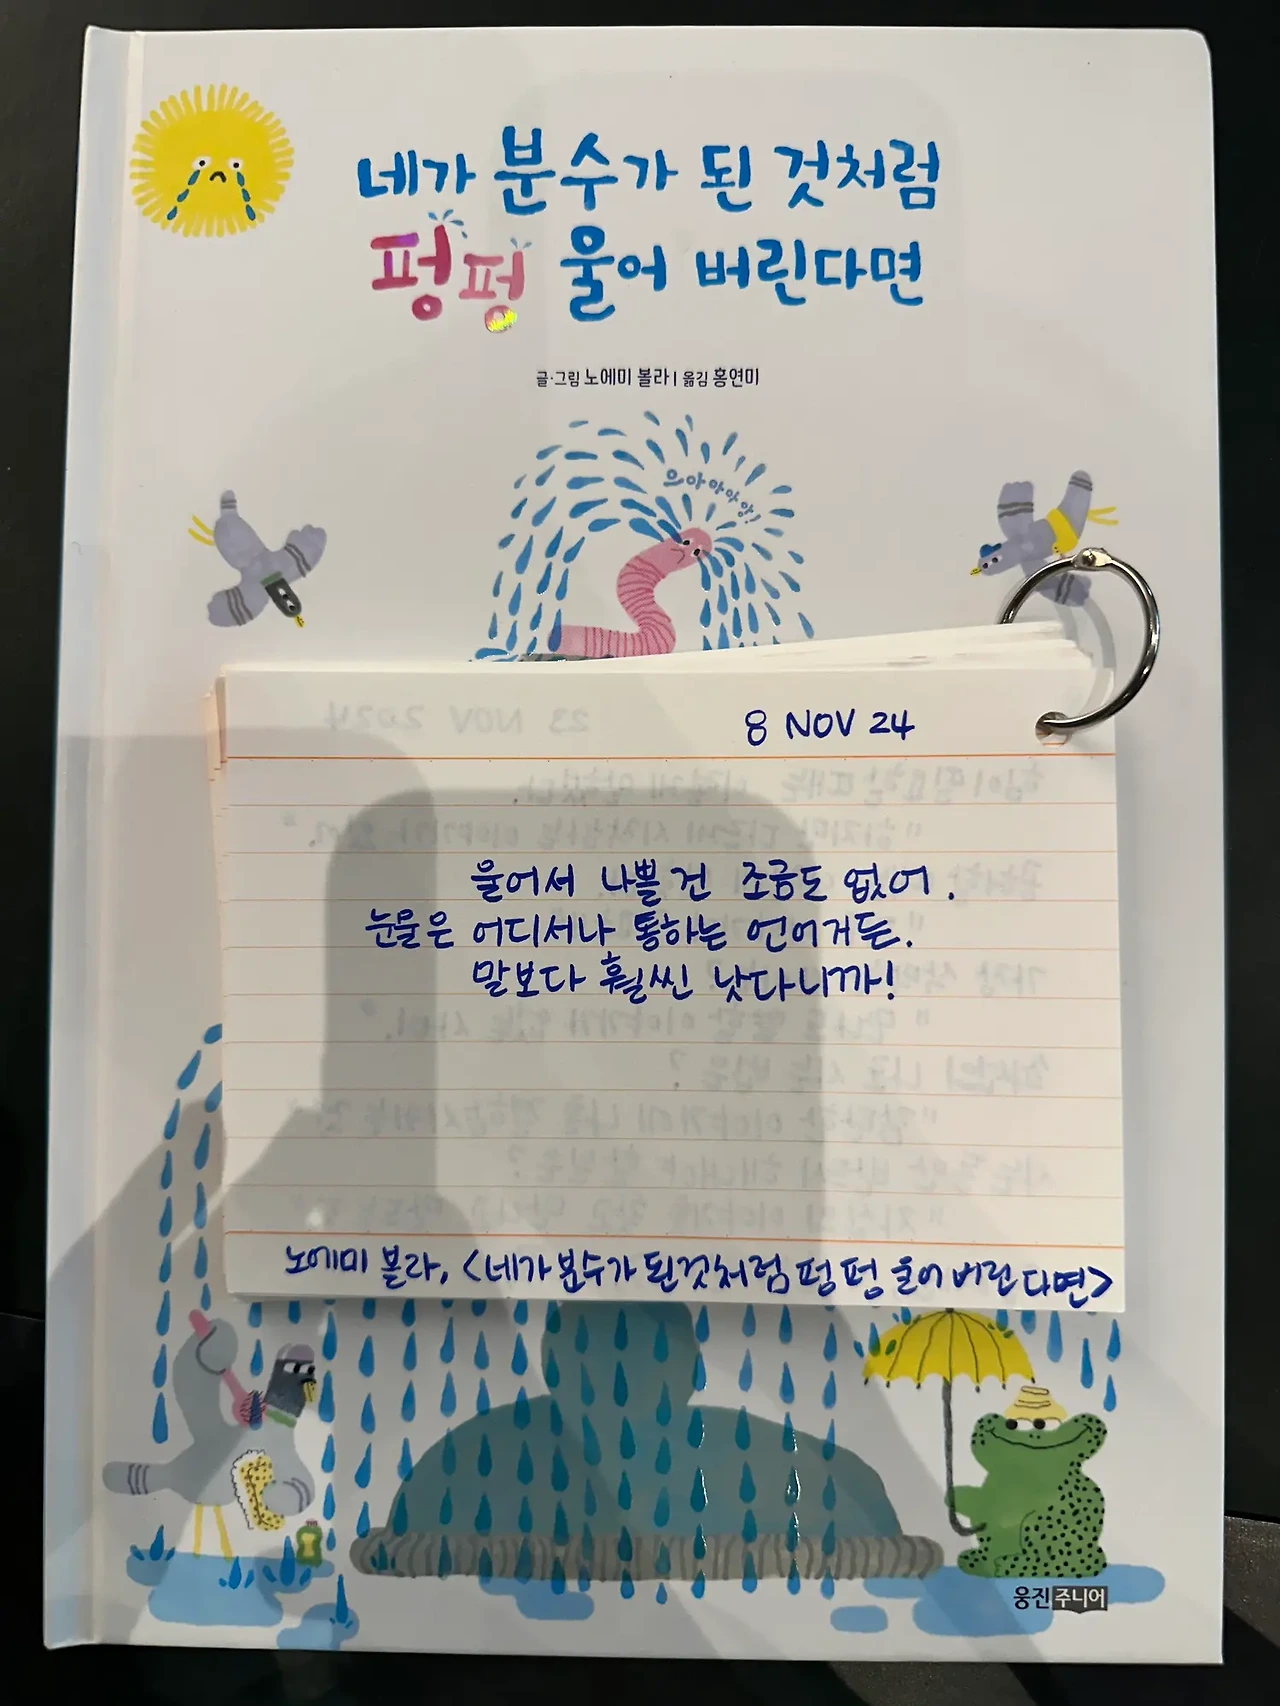 네가 분수가 된 것처럼
펑펑 울어 버린다면
글·그림 노에미 볼라 | 옮김 홍연미
으아아아앙!
8 NOV 24
울어서 나쁠 건 조금도 없어.
눈물은 어디서나 통하는 언어거든.
말보다 훨씬 낫다니까!
노에미 볼라, <네가 분수가 된 것처럼 펑펑 울어 버린다면>
웅진주니어
23 NOV 2024